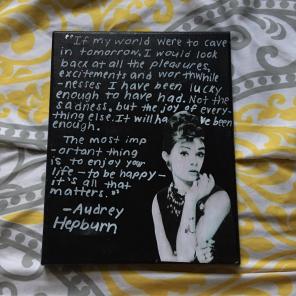 "If my world were to cave
in tomorrow, I would look
back at all the pleasures,
excitements and worthwhile
-nesses I have been lucky
enough to have had. Not the
sadness, but the joy of every
thing else. It will ha ve been
enough.
The most imp
-ortant thing
is to enjoy your
life - to be happy -
it's all that
matters."
-Audrey
Hepburn